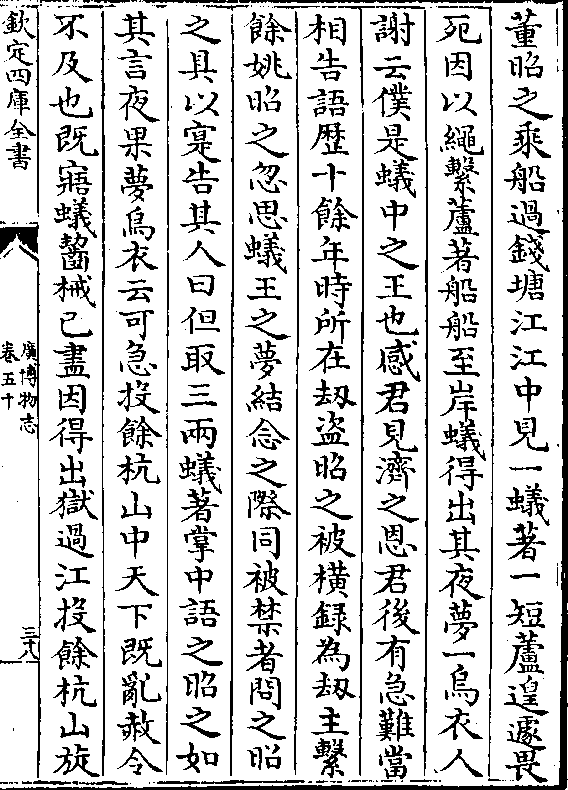 董昭之乘船過錢塘江江中見一蟻著一短蘆遑遽畏
死因以繩繫蘆著船船至岸蟻得出其夜夢一烏衣人
謝云僕是蟻中之王也感君見濟之恩君後有急難當
相告語歴十餘年時所在劫盜昭之被橫録為劫主繫
餘姚昭之忽思蟻王之夢結念之際同被禁者問之昭
之具以寔告其人曰但取三兩蟻著掌中語之昭之如
其言夜果夢烏衣云可急投餘杭山中天下既亂赦令
不及也既寤蟻齧械已盡因得出獄過江投餘杭山旋
欽定四庫全書
廣博物志
卷五十
三八